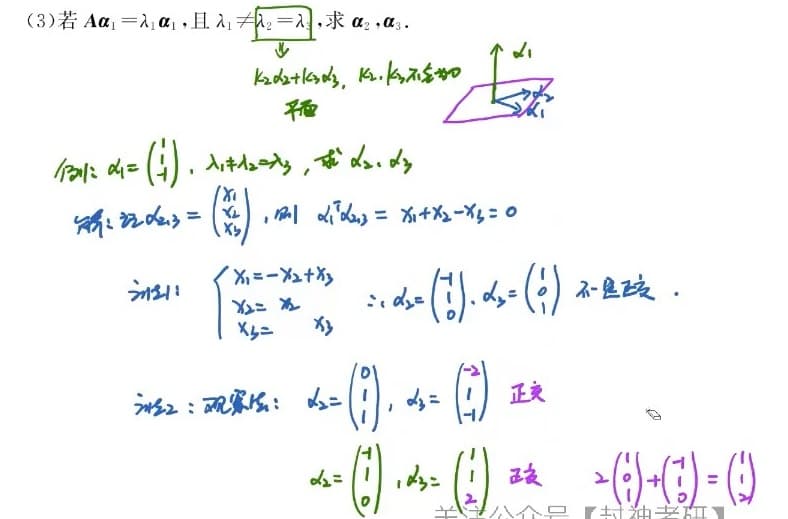 (3)若 Aα₁=λ₁α₁,且 λ₁≠λ₂=λ₃,求 α₂,α₃.
k₂α₂+k₃α₃, k₂,k₃不全为0
平面
α₁
α₂
α₁
例: α₁=(1 1 -1), λ₁≠λ₂=λ₃, 求 α₂、α₃
解: 设α₂,₃=(x₁ x₂ x₃), 则 α₁ᵀα₂,₃ = x₁+x₂-x₃=0
法1: { x₁=-x₂+x₃
x₂= x₂
x₃= x₃
∴ α₂=(-1 1 0), α₃=(1 0 1) 不一定正交.
法2: 观察法: α₂=(0 1 1), α₃=(-2 1 -1) 正交
α₂=(-1 1 0), α₃=(1 1 2) 正交 2(1 0 1)+(-1 1 0)=(1 1 2)
关注公众号【封神考研】